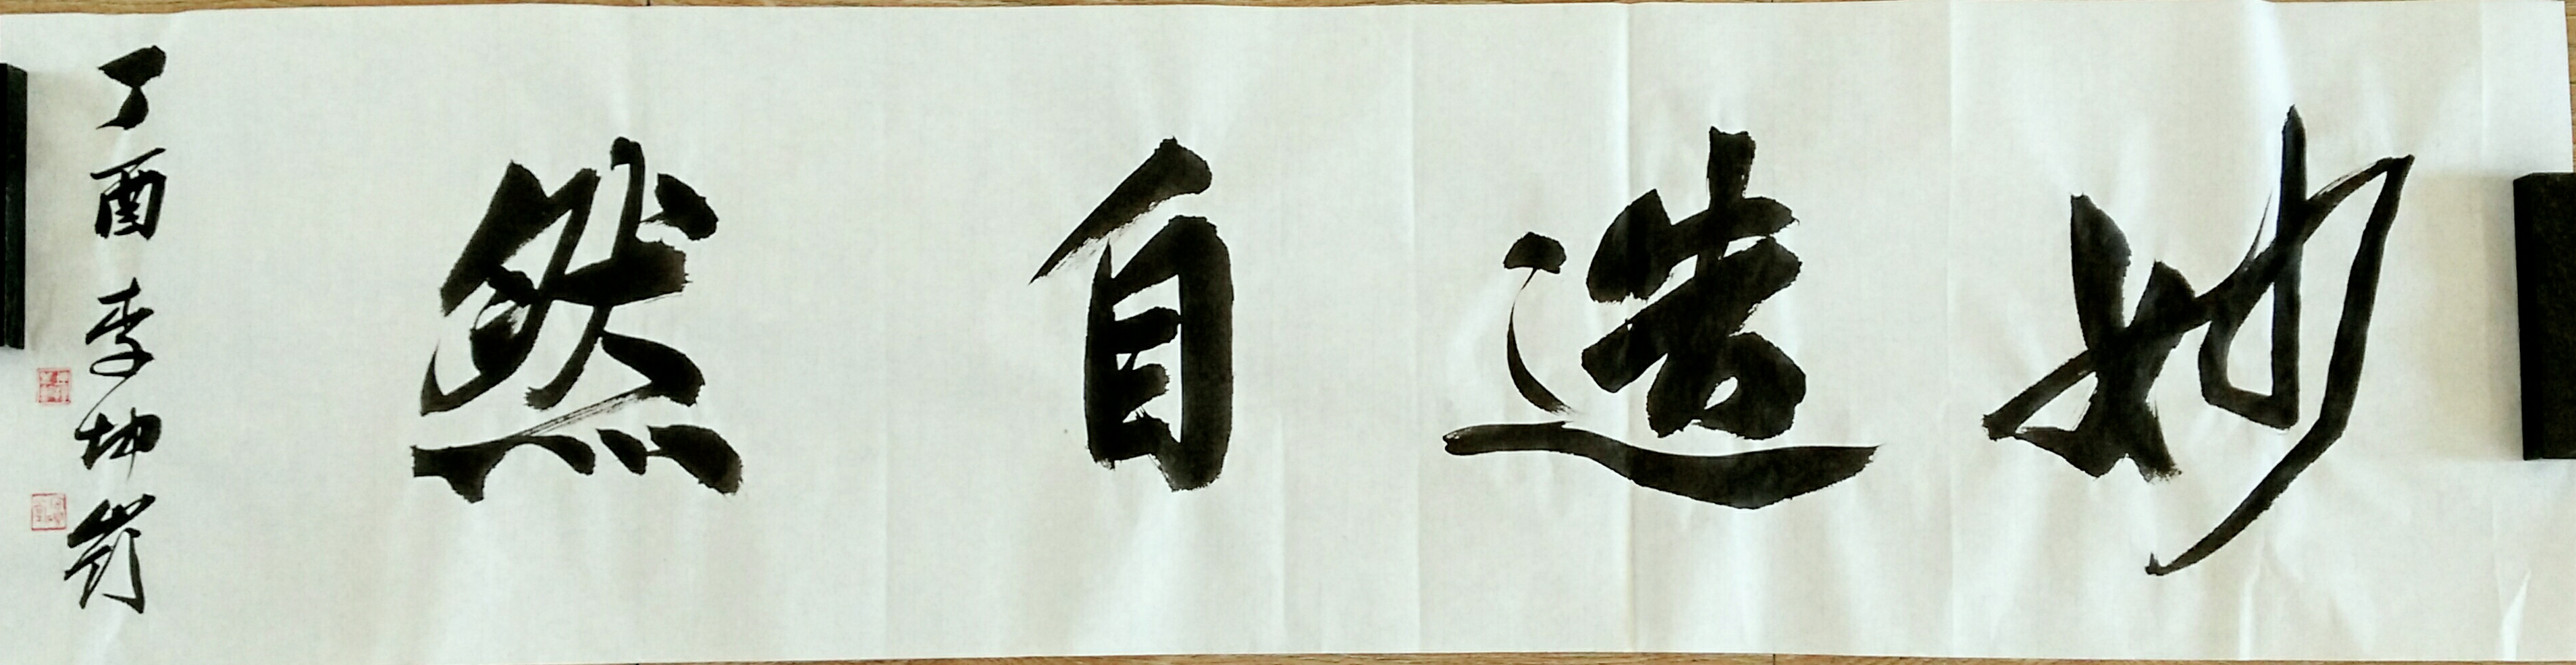 妙造自然
丁酉 李坤岗